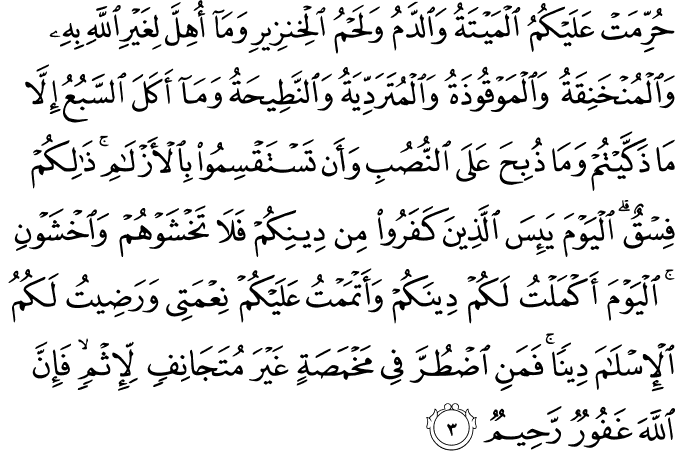 حُرِّمَتْ عَلَيْكُمُ ٱلْمَيْتَةُ وَٱلدَّمُ وَلَحْمُ ٱلْخِنزِيرِ وَمَآ أُهِلَّ لِغَيْرِ ٱللَّهِ بِهِۦ
وَٱلْمُنْخَنِقَةُ وَٱلْمَوْقُوذَةُ وَٱلْمُتَرَدِّيَةُ وَٱلنَّطِيحَةُ وَمَآ أَكَلَ ٱلسَّبُعُ إِلَّا
مَا ذَكَّيْتُمْ وَمَا ذُبِحَ عَلَى ٱلنُّصُبِ وَأَن تَسْتَقْسِمُوا۟ بِٱلْأَزْلَٰمِ ۚ ذَٰلِكُمْ
فِسْقٌ ۗ ٱلْيَوْمَ يَئِسَ ٱلَّذِينَ كَفَرُوا۟ مِن دِينِكُمْ فَلَا تَخْشَوْهُمْ وَٱخْشَوْنِ
ۚ ٱلْيَوْمَ أَكْمَلْتُ لَكُمْ دِينَكُمْ وَأَتْمَمْتُ عَلَيْكُمْ نِعْمَتِى وَرَضِيتُ لَكُمُ
ٱلْإِسْلَٰمَ دِينًا ۚ فَمَنِ ٱضْطُرَّ فِى مَخْمَصَةٍ غَيْرَ مُتَجَانِفٍ لِّإِثْمٍ ۙ فَإِنَّ
ٱللَّهَ غَفُورٌ رَّحِيمٌ ٣